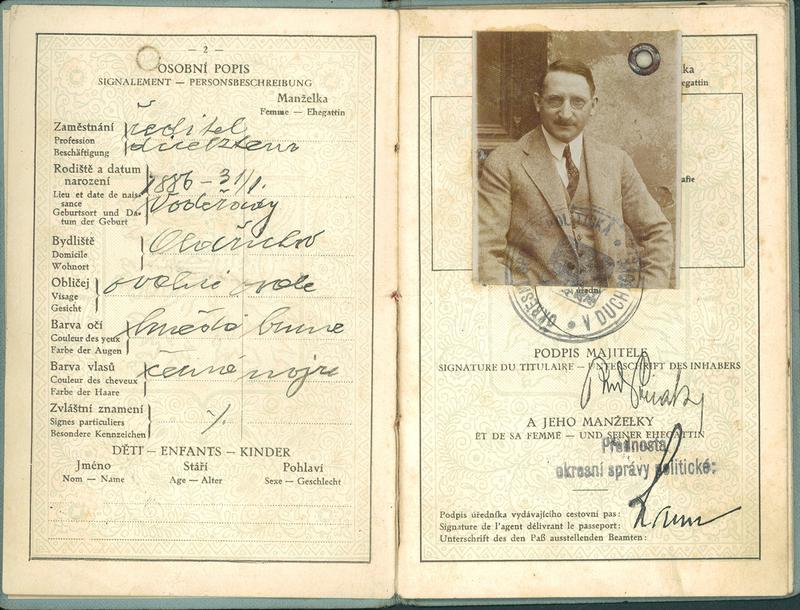 — 2 —
OSOBNÍ POPIS
SIGNALEMENT — PERSONSBESCHREIBUNG
Manželka
Femme — Ehegattin
Zaměstnání
Profession
Beschäftigung
ředitel
directeur
Rodiště a datum
narození
Lieu et date de nais-
sance
Geburtsort und Da-
tum der Geburt
1886 – 31/1.
Voděrady
Bydliště
Domicile
Wohnort
Obličej
Visage
Gesicht
ovální ovale
Barva očí
Couleur des yeux
Farbe der Augen
hnědá brune
Barva vlasů
Couleur des cheveux
Farbe der Haare
černé noire
Zvláštní znamení
Signes particuliers
Besondere Kennzeichen
DĚTI — ENFANTS — KINDER
Jméno Stáří Pohlaví
Nom — Name Age — Alter Sexe — Geschlecht
ka
egattin
afie
úřední
POLITICKÁ
V DUCHCOVĚ
PODPIS MAJITELE
SIGNATURE DU TITULAIRE — UNTERSCHRIFT DES INHABERS
A JEHO MANŽELKY
ET DE SA FEMME — UND SEINER EHEGATTIN
Přednosta
okresní správy politické:
Podpis úředníka vydávajícího cestovní pas:
Signature de l'agent délivrant le passeport:
Unterschrift des den Paß ausstellenden Beamten: